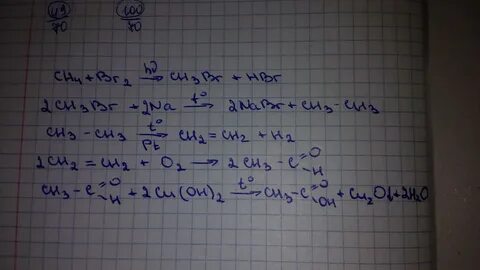 49/70 100/70
CH4 + Br2 →hν CH3Br + HBr
2CH3Br + 2Na →t° 2NaBr + CH3-CH3
CH3-CH3 →t° Pt CH2=CH2 + H2
2CH2=CH2 + O2 → 2CH3-C=O H
CH3-C=O H + 2Cu(OH)2 →t° CH3-C=O OH + Cu2O↓+2H2O